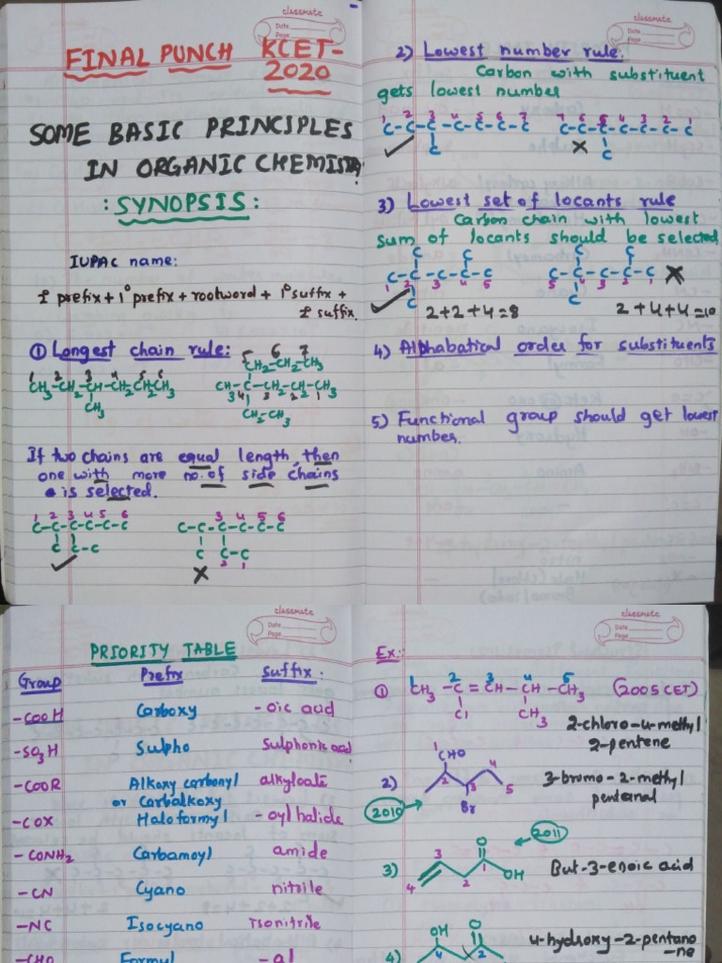 classmate
Date
Page
FINAL PUNCH KCET-
2020
SOME BASIC PRINCIPLES
IN ORGANIC CHEMISTRY
: SYNOPSIS :
IUPAC name:
2° prefix + 1° prefix + rootword + 1° suffix +
2° suffix
① Longest chain rule:
5 6 7
CH2-CH2-CH3
1 2 3 4 5 6
CH3-CH2-CH-CH2-CH2-CH3
CH3
CH-C-CH2-CH2-CH3
3 4 3 2 1
CH2-CH3
If two chains are equal length, then
one with more no. of side chains
is selected.
1 2 3 4 5 6
C-C-C-C-C-C
C C-C
✓
3 4 5 6
C-C-C-C-C-C
C C-C
2 1
✗
classmate
Date
Page
2) Lowest number rule:
Carbon with substituent
gets lowest number
1 2 3 4 5 6 7
C-C-C-C-C-C-C
C
✓
7 6 5 4 3 2 1
C-C-C-C-C-C-C
C
✗
3) Lowest set of locants rule
Carbon chain with lowest
sum of locants should be selected
C C
C-C-C-C-C
1 2 3 4 5
C
✓
2+2+4=8
C C
C-C-C-C-C ✗
5 4 3 2 1
C
2+4+4=10
4) Alphabatical order for substituents
5) Functional group should get lowest
number.
classmate
Date
Page
PRIORITY TABLE
Group Prefix Suffix:
-COOH Carboxy -oic acid
-SO3H Sulpho Sulphonic acid
-COOR Alkoxy carbonyl alkyloate
or Carbalkoxy
-COX Haloformyl -oyl halide
-CONH2 Carbamoyl amide
-CN Cyano nitrile
-NC Isocyano Isonitrile
-CHO Formyl -al
classmate
Date
Page
Ex:
① 1 2 3 4 5
CH3-C=CH-CH-CH3 (2005 CET)
Cl CH3
2-chloro-4-methyl
2-pentene
2) 1 CHO
2 3 4 5
Br
2010
3-bromo-2-methyl
pentanal
2011
3) O
OH
4 3 2 1
But-3-enoic acid
4) OH O
4 2
4-hydroxy-2-pentano
-ne